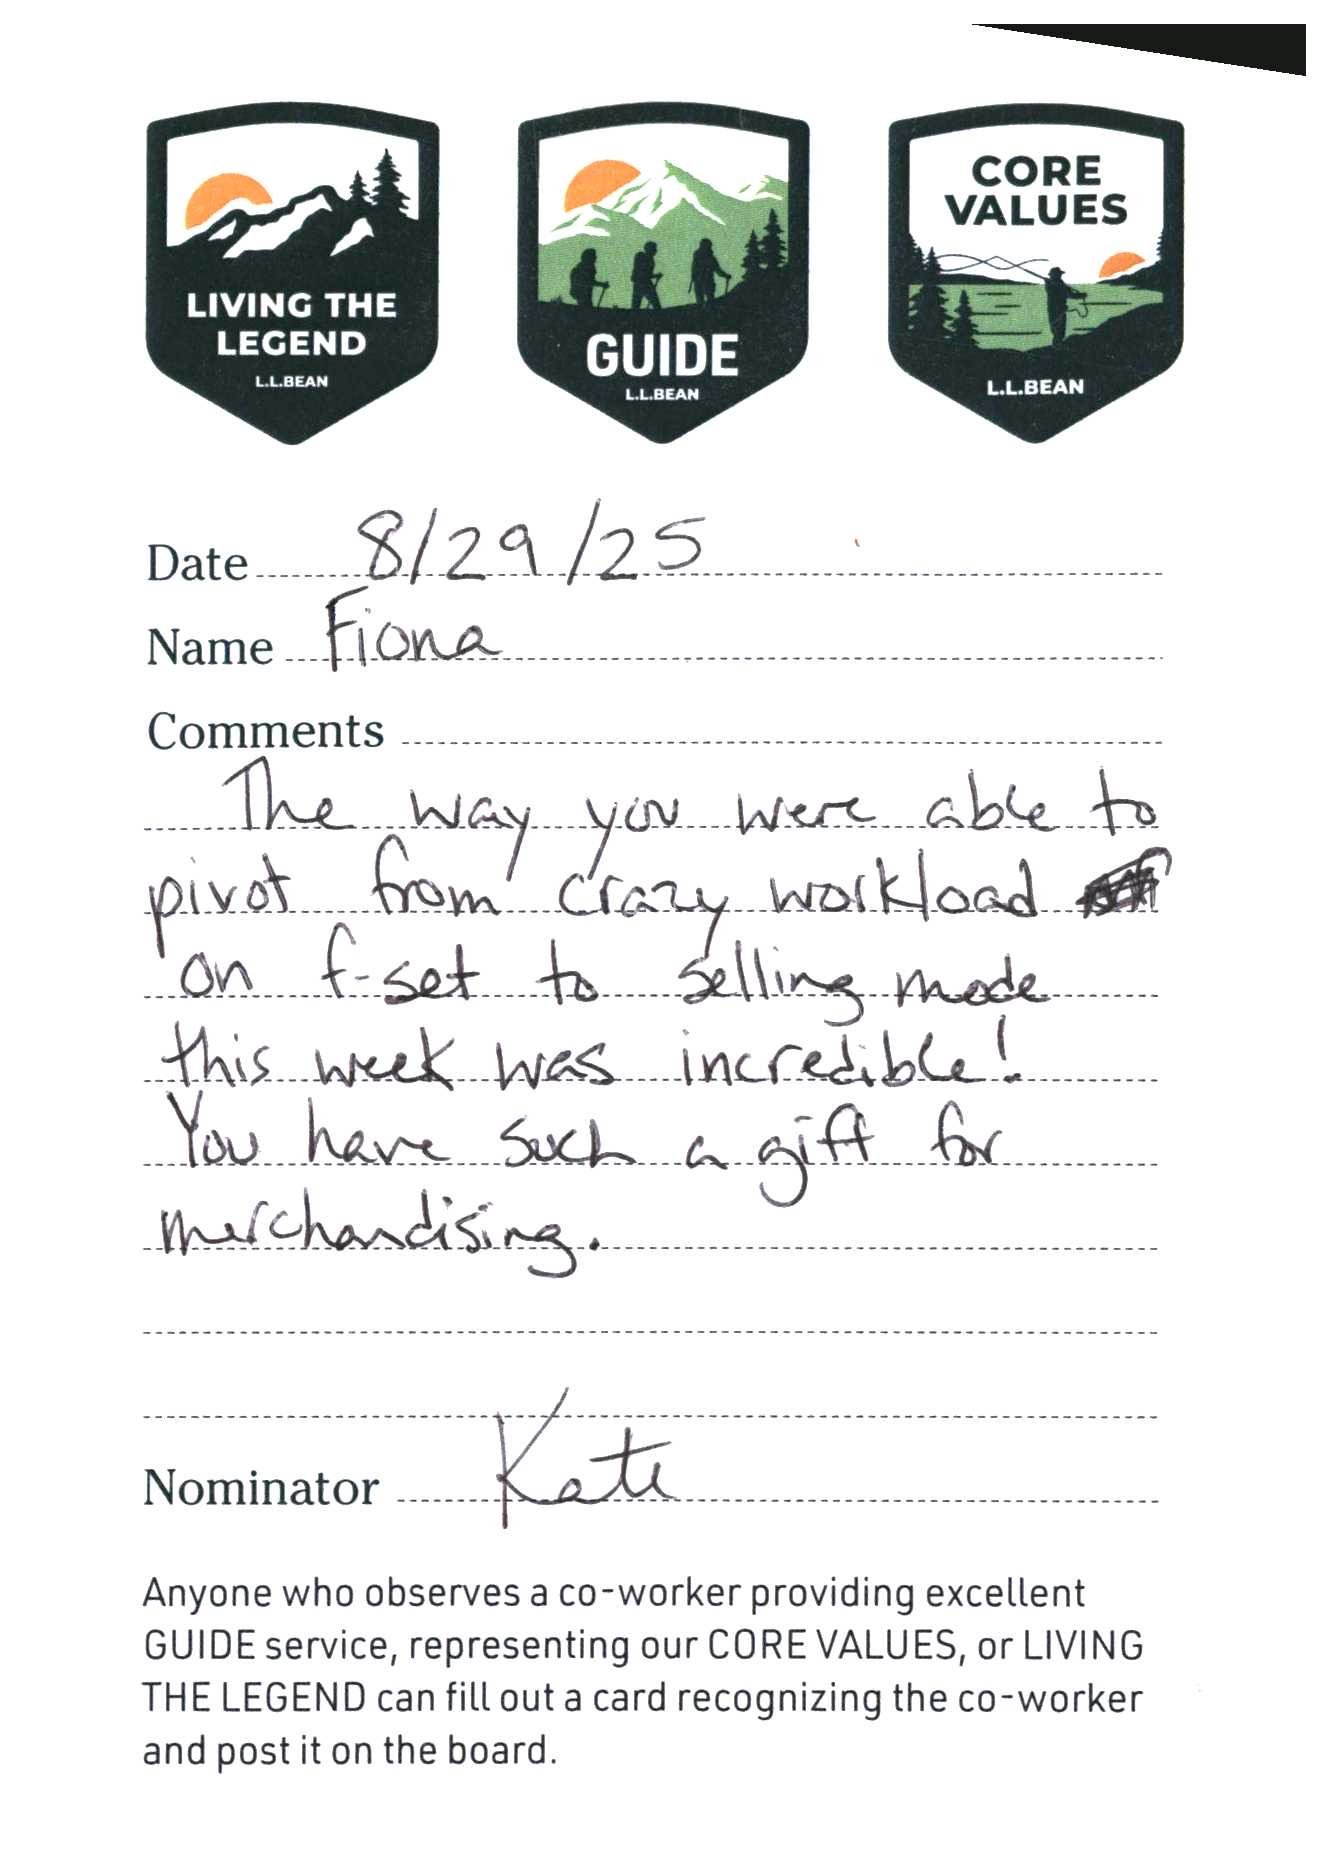 LIVING THE
LEGEND
L.L.BEAN
GUIDE
L.L.BEAN
CORE
VALUES
L.L.BEAN
Date 8/29/25
Name Fiona
Comments
The way you were able to
pivot from crazy workload
on f-set to selling mode
this week was incredible!
You have such a gift for
merchandising.
Nominator Kate
Anyone who observes a co-worker providing excellent
GUIDE service, representing our CORE VALUES, or LIVING
THE LEGEND can fill out a card recognizing the co-worker
and post it on the board.